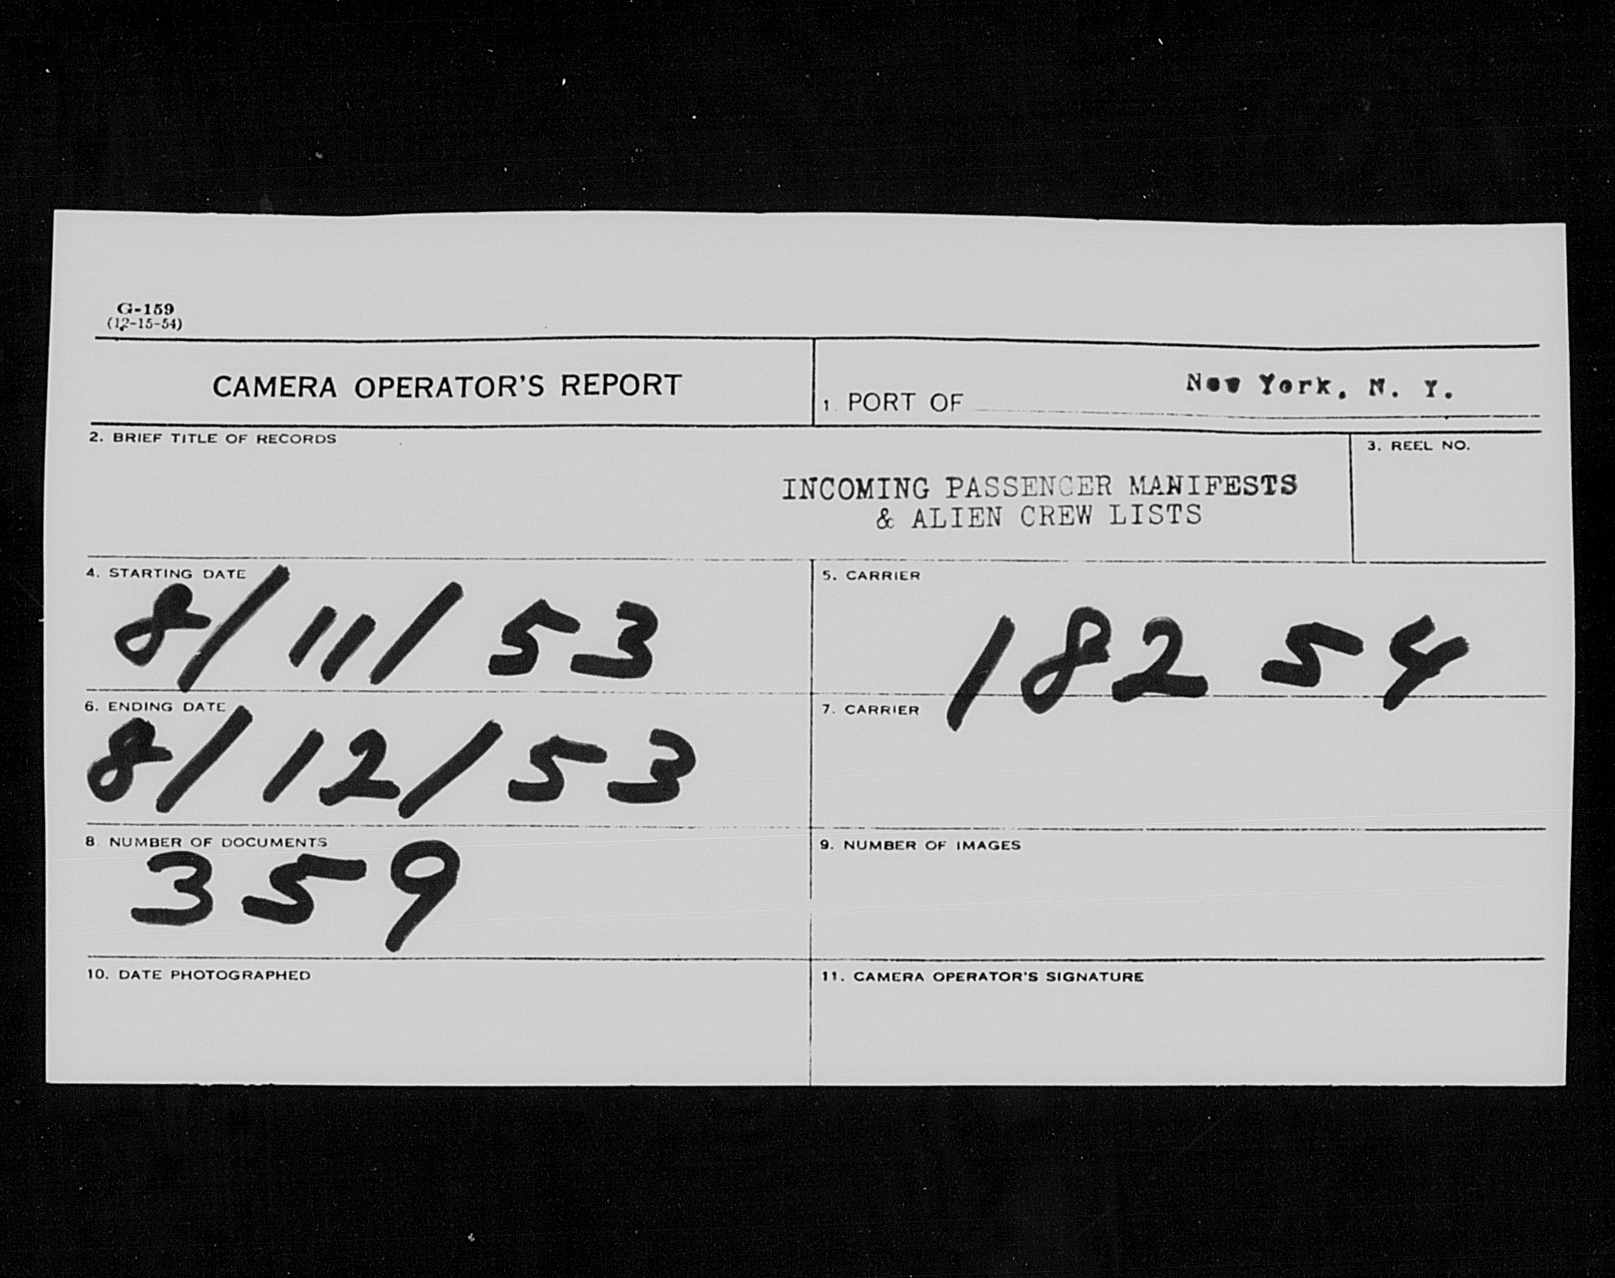 G-159
(12-15-54)
CAMERA OPERATOR'S REPORT
1. PORT OF New York, N. Y.
2. BRIEF TITLE OF RECORDS
3. REEL NO.
INCOMING PASSENGER MANIFESTS
& ALIEN CREW LISTS
4. STARTING DATE
8/11/53
5. CARRIER
18254
6. ENDING DATE
8/12/53
7. CARRIER
8 NUMBER OF DOCUMENTS
359
9. NUMBER OF IMAGES
10. DATE PHOTOGRAPHED
11. CAMERA OPERATOR'S SIGNATURE